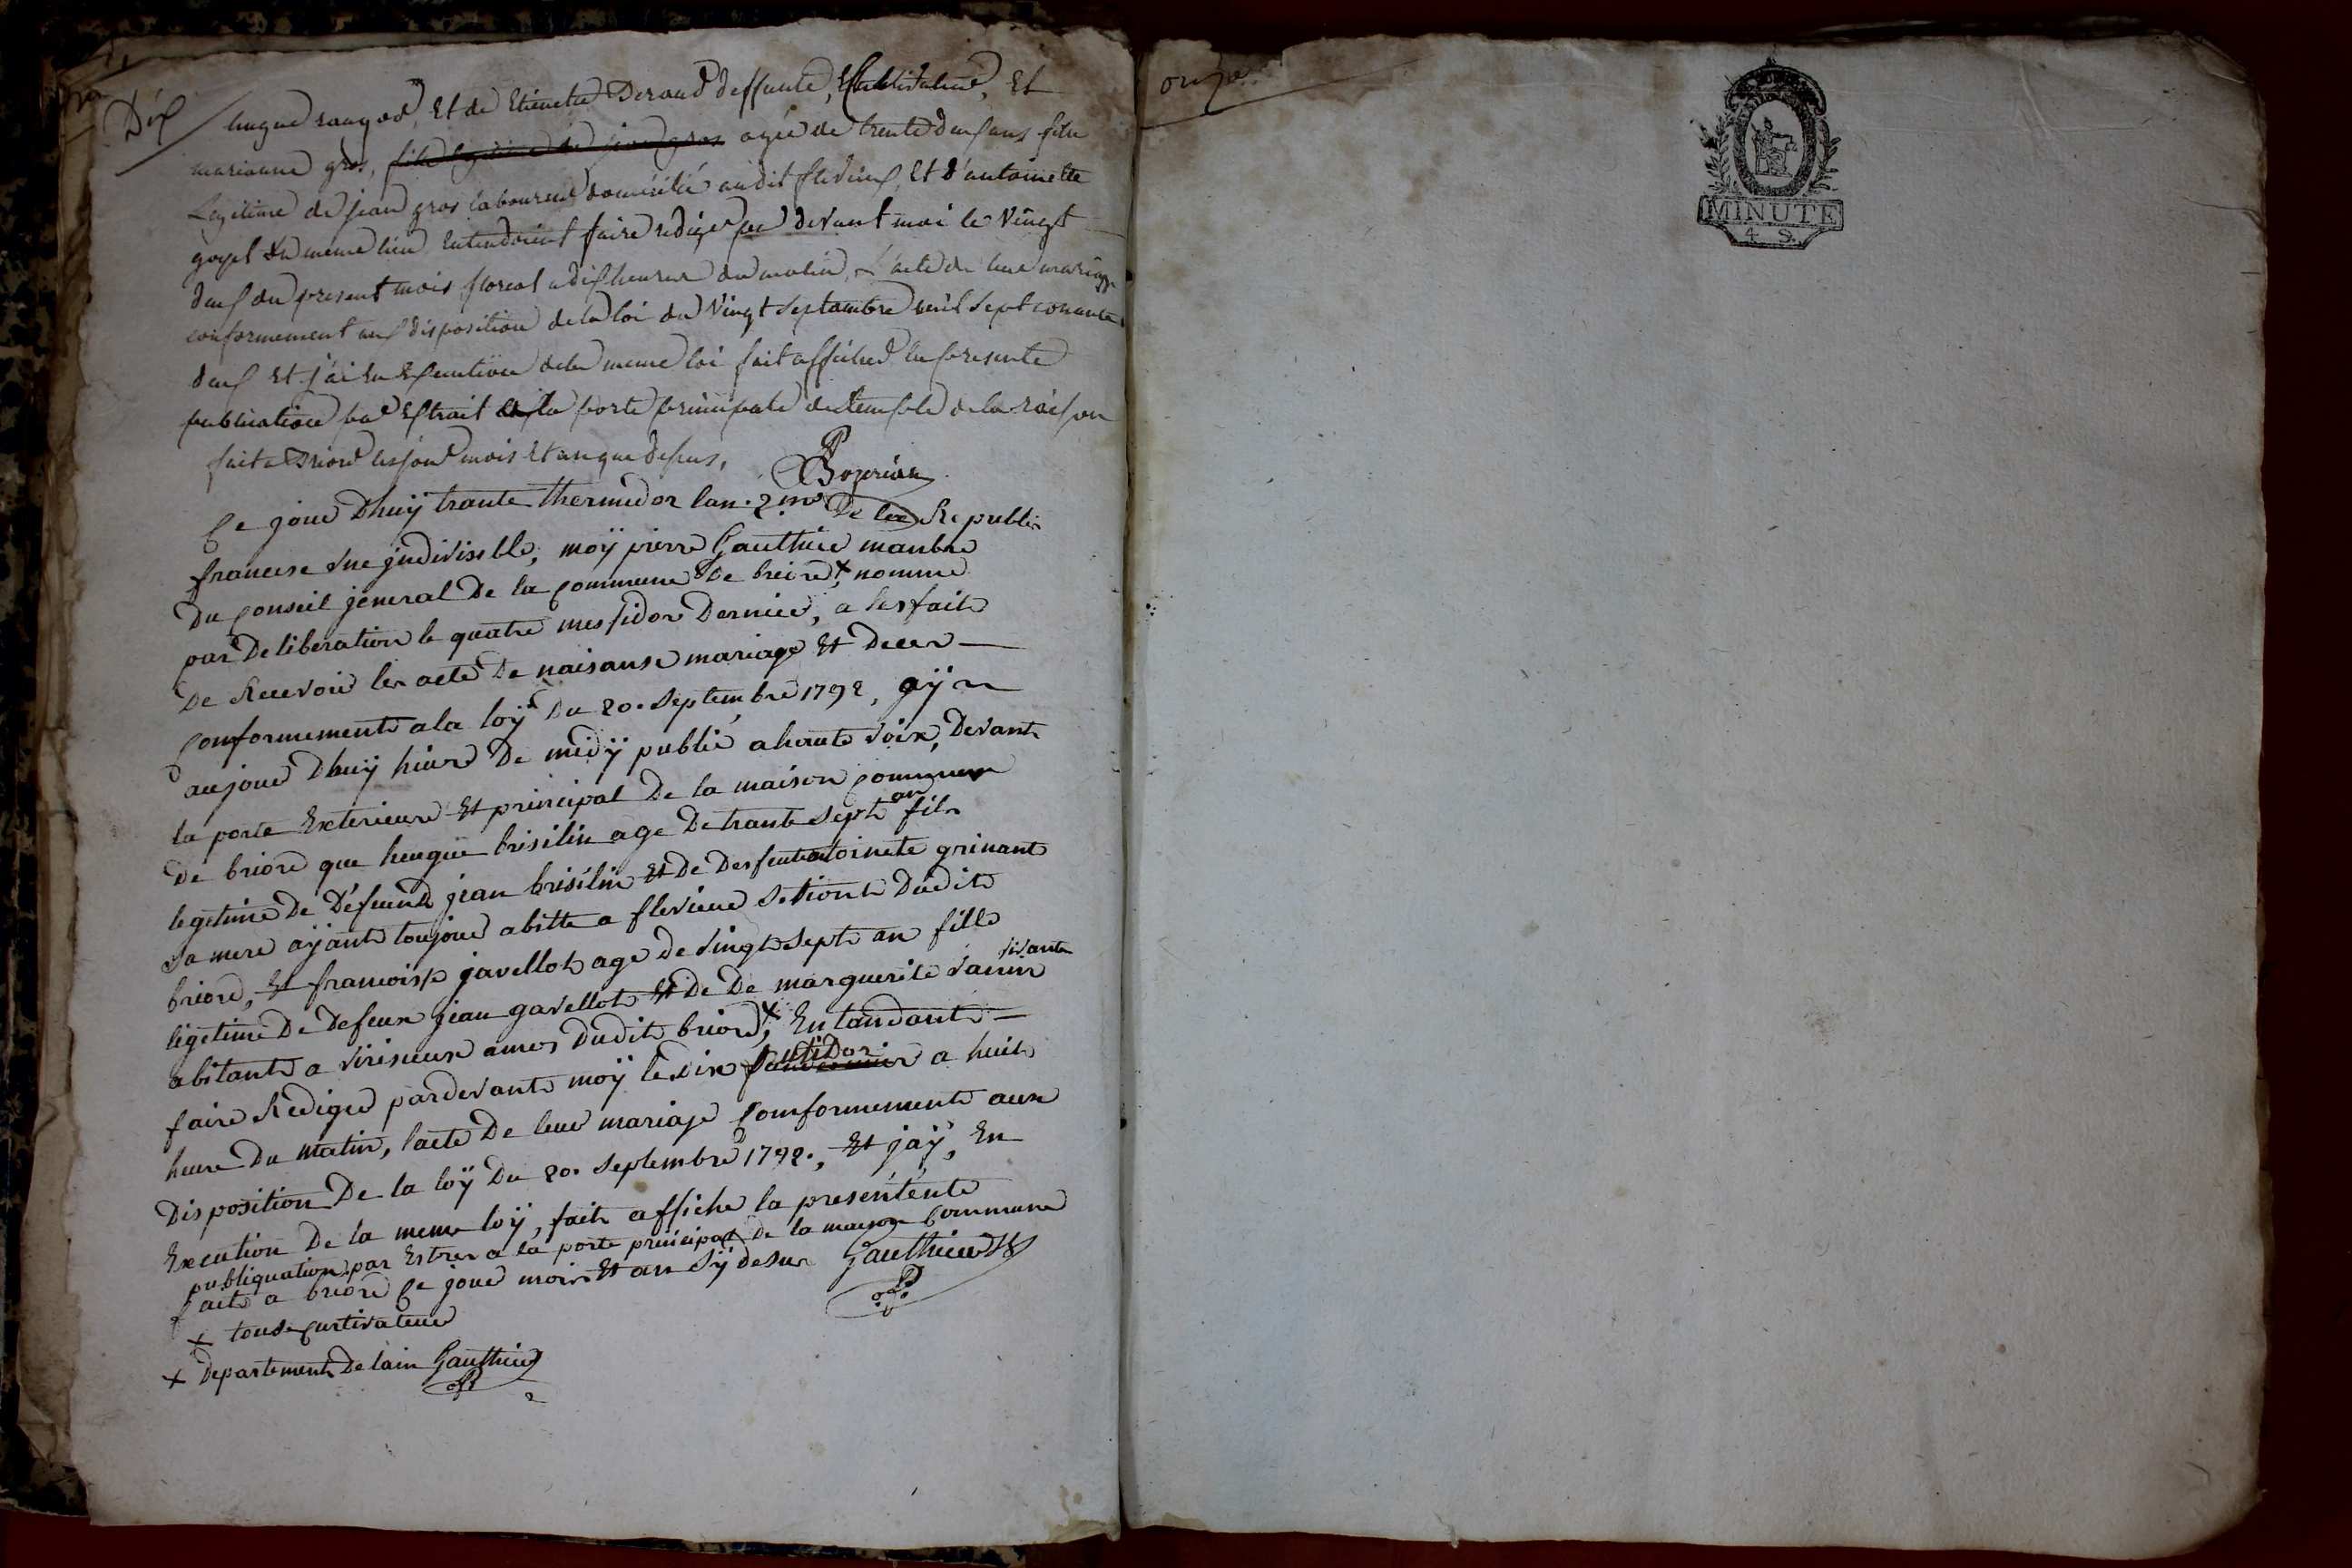 Dix
hugue rangod, Et de Etienette Deraud deffunte, Et
marianne gros, agée de trente deux ans fille
Legitime de jean gros laboureur domicilié audit flevieux, Et d'antoinette
goyet du meme lieu entendoient faire rediger par devant moi le vingt
deux du present mois floreal a dix heures du matin, L'acte de leur mariage
conformement aux disposition de la loi du vingt septambre mil sept
deux Et j'ai en Execution de la meme loi fait afficher la presente
publication par Extrait a la porte principale du temple de la raison
fait a Briord les jour mois et an que dessus,
Ce jour Dhuÿ trante thermidor lan 2me De la Republi
francese une jndivissble, moÿ pierre Gauthier manbre
Du Conseil jeneral De la Commune De breord + nomme
par Deliberation le quatre messidor Dernier, a les faits
De Recevoir les acte De naisanse mariage Et Deces
Conformements a la loÿ Du 20. Septembre 1792, aÿ
aujour Dhuÿ hiure De midÿ publié a haute voix, Devant
la porte Exterieure Et principal De la maison Commune
De briord que hugue brisilin age De trante Septs an fils
legetime De Defeund jean brisilin Et De Desfeunte antoinete grinant
sa mere aÿants toujour abitte a flevieux Setionts Dudits
briord, Et francoisse javellots age De vingts Septs an fille
ligetime De Defeux jean gavellots Et De De marguerite vanin vivante
abitants a virisieux ames Dudits briord +, Entandants
faire Rediger pardevants moÿ le dix fautidor a huits
heure Du matin, lacte De leur mariaje Comformements aux
Disposition De la loÿ Du 20. Septembre 1792., Et jaÿ, En
Execution De la meme loÿ, faits affiche la presentente
publiquation par Estrer a la porte principal De la maison Commune
faits a briord Ce jour mois Et an Sÿ desur Gauthier
+ tous Curtivateur
+ Departements De lain Gauthier
onze
MINUTE
4 S.